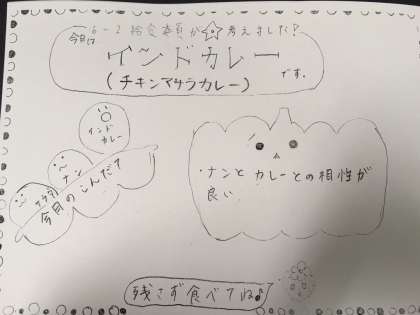 6-2 給食委員が考えました?
今日は
インドカレー
(チキンマサラカレー)
です。
インド
カレー
ナン
サラダ
今日のこんだて
・ナンとカレーとの相性が
良い
残さず食べてね♪